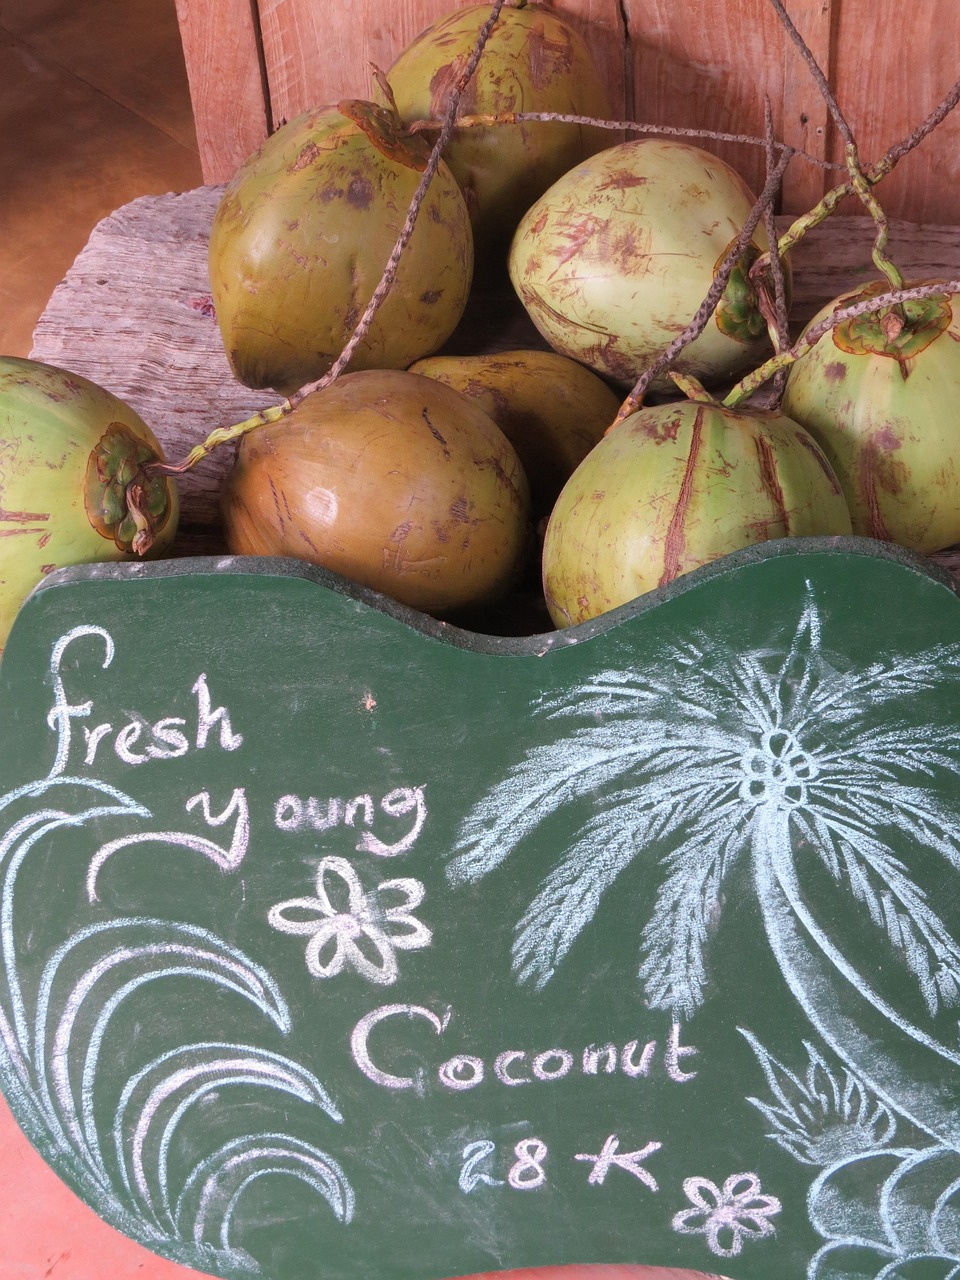 fresh
young
Coconut
28 K